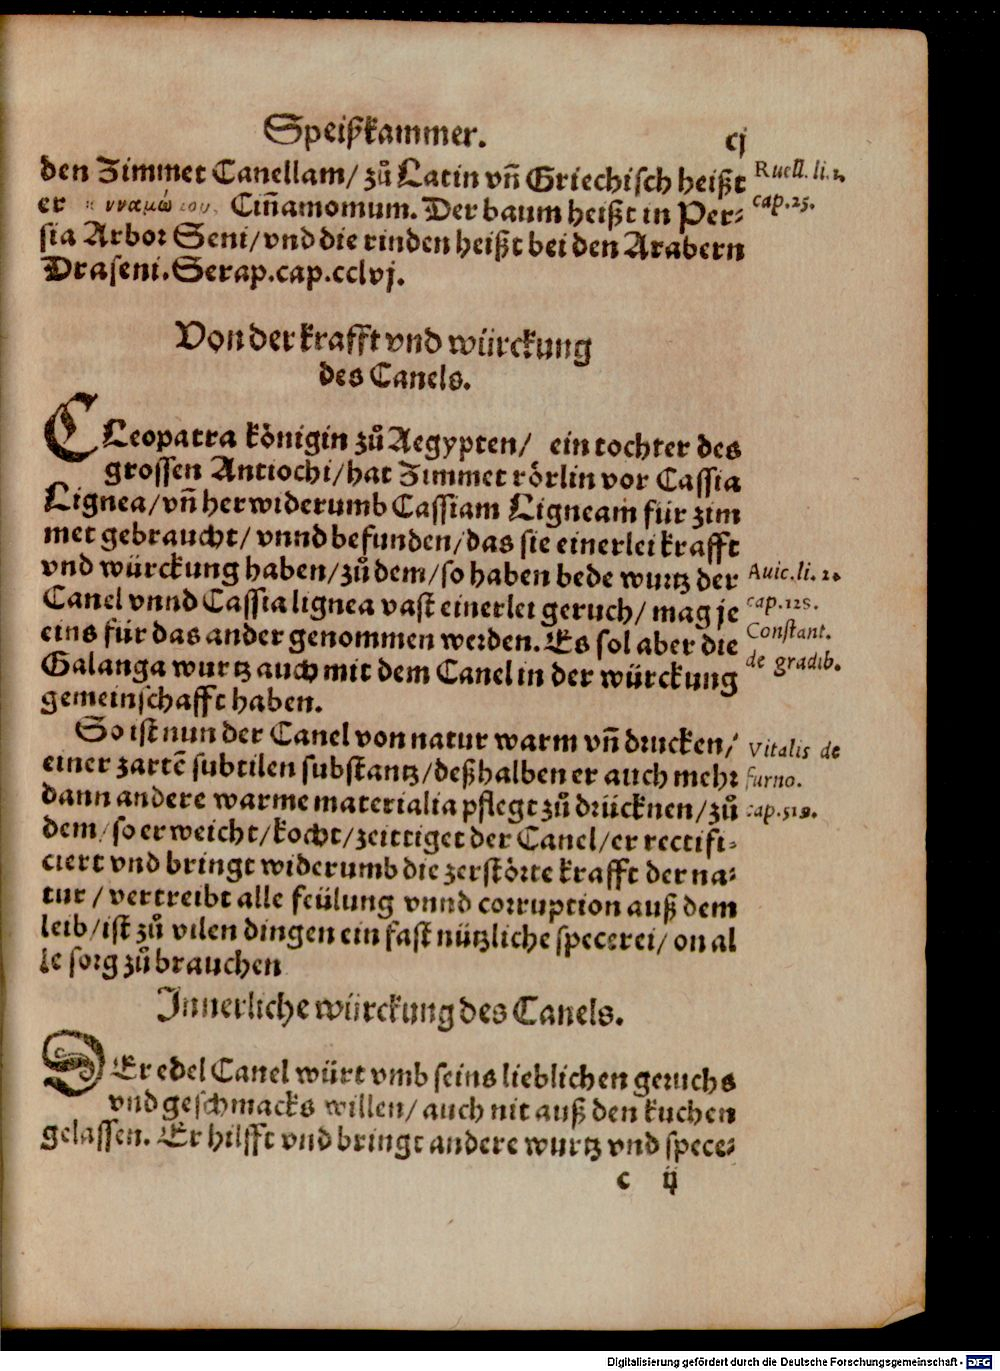 Speißkammer. cj
den Zimmet Canellam/ zů Latin vñ Griechisch heißt
er Ciñamomum. Der baum heißt in Per-
sia Arbor Seni/vnd die rinden heißt bei den Arabern
Draseni. Serap.cap.cclvj.
Ruell. li.1.
cap.25.
Von der krafft vnd würckung
des Canels.
CLeopatra königin zů Aegypten/ ein tochter des
grossen Antiochi/hat Zimmet rörlin vor Cassia
Lignea/vñ herwiderumb Cassiam Ligneam für zim
met gebraucht/ vnnd befunden/das sie einerlei krafft
vnd würckung haben/zů dem/so haben bede wurtz der
Canel vnnd Cassia lignea vast einerlei geruch/ mag je
eins für das ander genommen werden. Es sol aber die
Galanga wurtz auch mit dem Canel in der würckung
gemeinschafft haben.
Auic.li. 2.
cap.128.
Constant.
de gradib.
So ist nun der Canel von natur warm vñ drucken/
einer zartē subtilen substantz/deßhalben er auch mehr
dann andere warme materialia pflegt zů drücknen/zů
dem/so erweicht/kocht/zeittiget der Canel/er rectifi-
ciert vnd bringt widerumb die zerstörte krafft der na-
tur/vertreibt alle feülung vnnd corruption auß dem
leib/ist zů vilen dingen ein fast nützliche specerei/on al
le sorg zů brauchen
Vitalis de
furno.
cap.519.
Innerliche würckung des Canels.
DEr edel Canel würt vmb seins lieblichen geruchs
vnd geschmacks willen/auch nit auß den kuchen
gelassen. Er hilfft vnd bringt andere wurtz vnd spece-
c ij
Digitalisierung gefördert durch die Deutsche Forschungsgemeinschaft - DFG